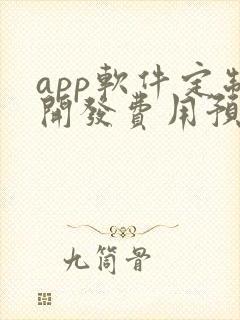 app軟件定制
開發費用預
九筒骨